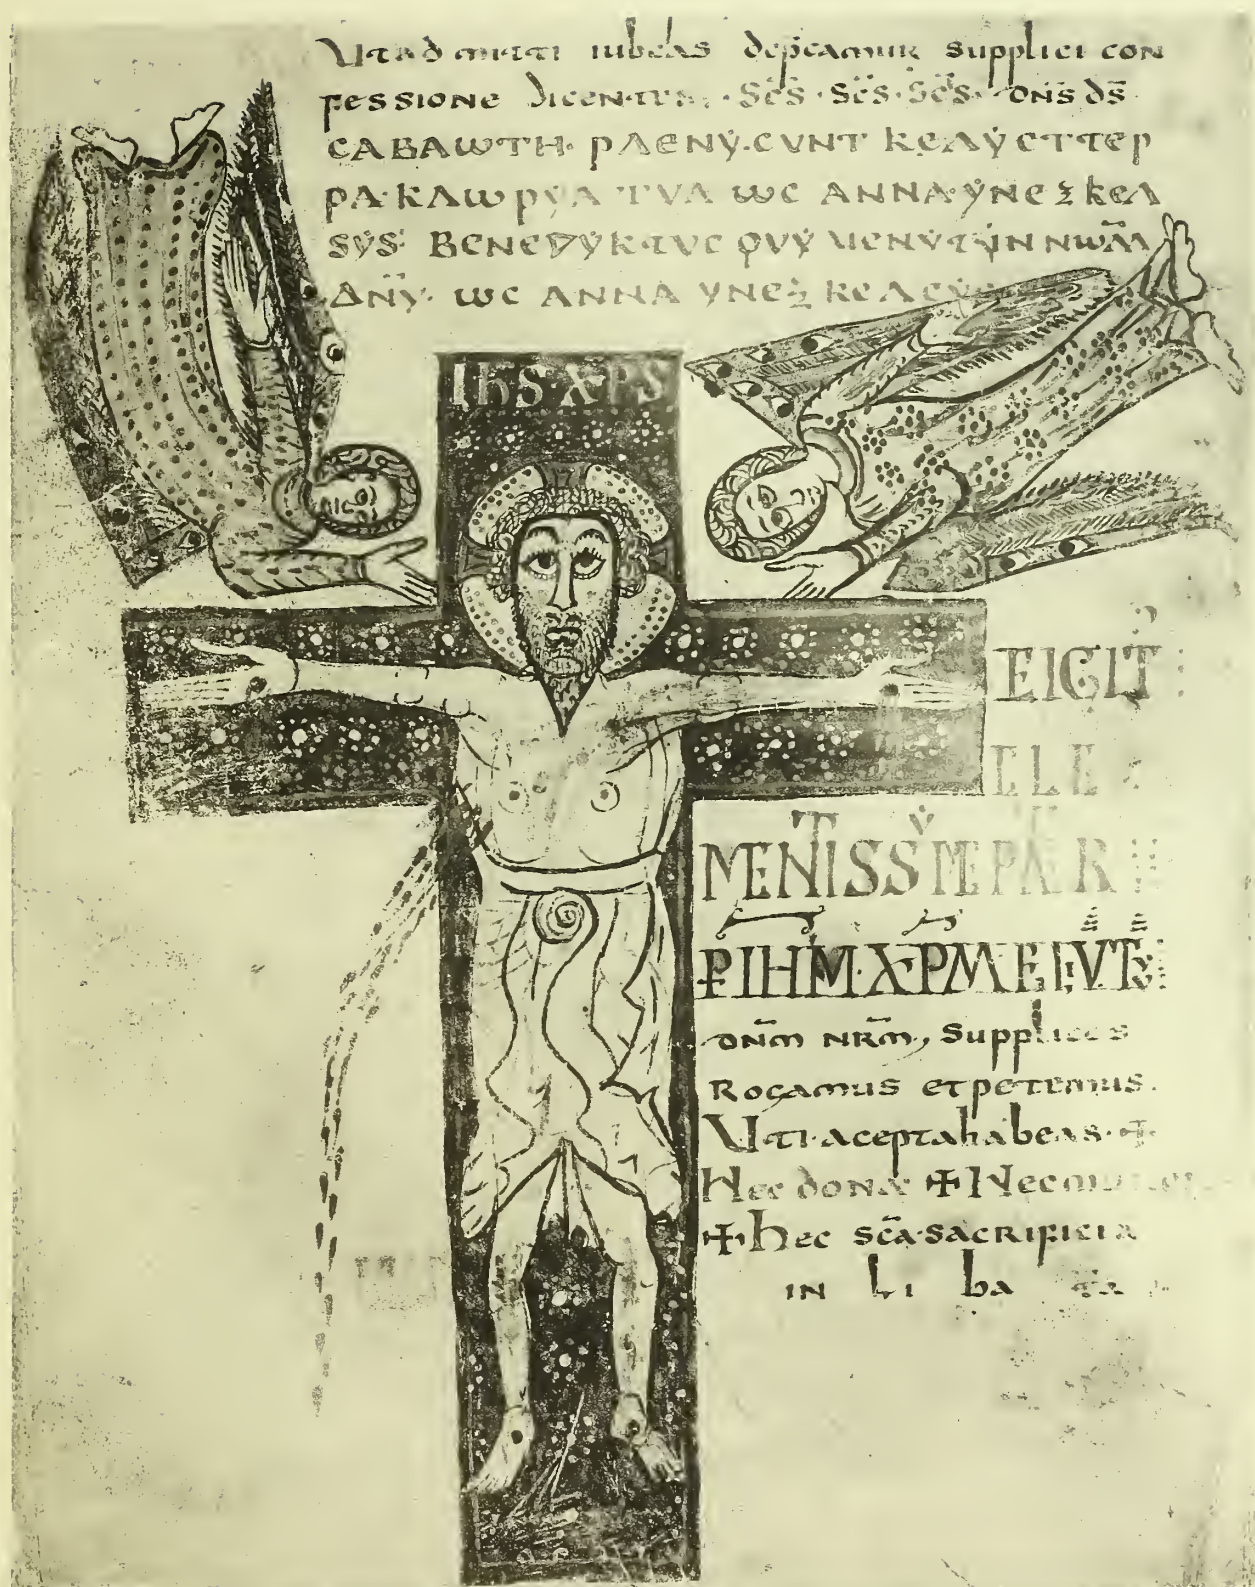 Utad mitti iubeas dep̄camur supplici con
fessione dicentes · Sc̄s · Sc̄s · Sc̄s · Dn̄s ds̄
CABAωTH· PΛENẎ·CVNT KEΛẎ ETTEP
PA·KΛωPẎA TVA ωC ANNA·ẎNEξKEΛ
SẎS· BENEDẎKTVC QVẎ UENẎTẎN NωM̄
ΔN̄Ẏ· ωC ANNA ẎNEξKE
IHS·XPS
EIGIT
ELE
MENTISSIME PATR
P IHM·XPM
dn̄m nr̄m, supplices
Rogamus et petemus.
Uti·aceptahabeas·✠
Hec dona ✠ Hec
✠ hec sc̄a·sacrificia
in li ba ta